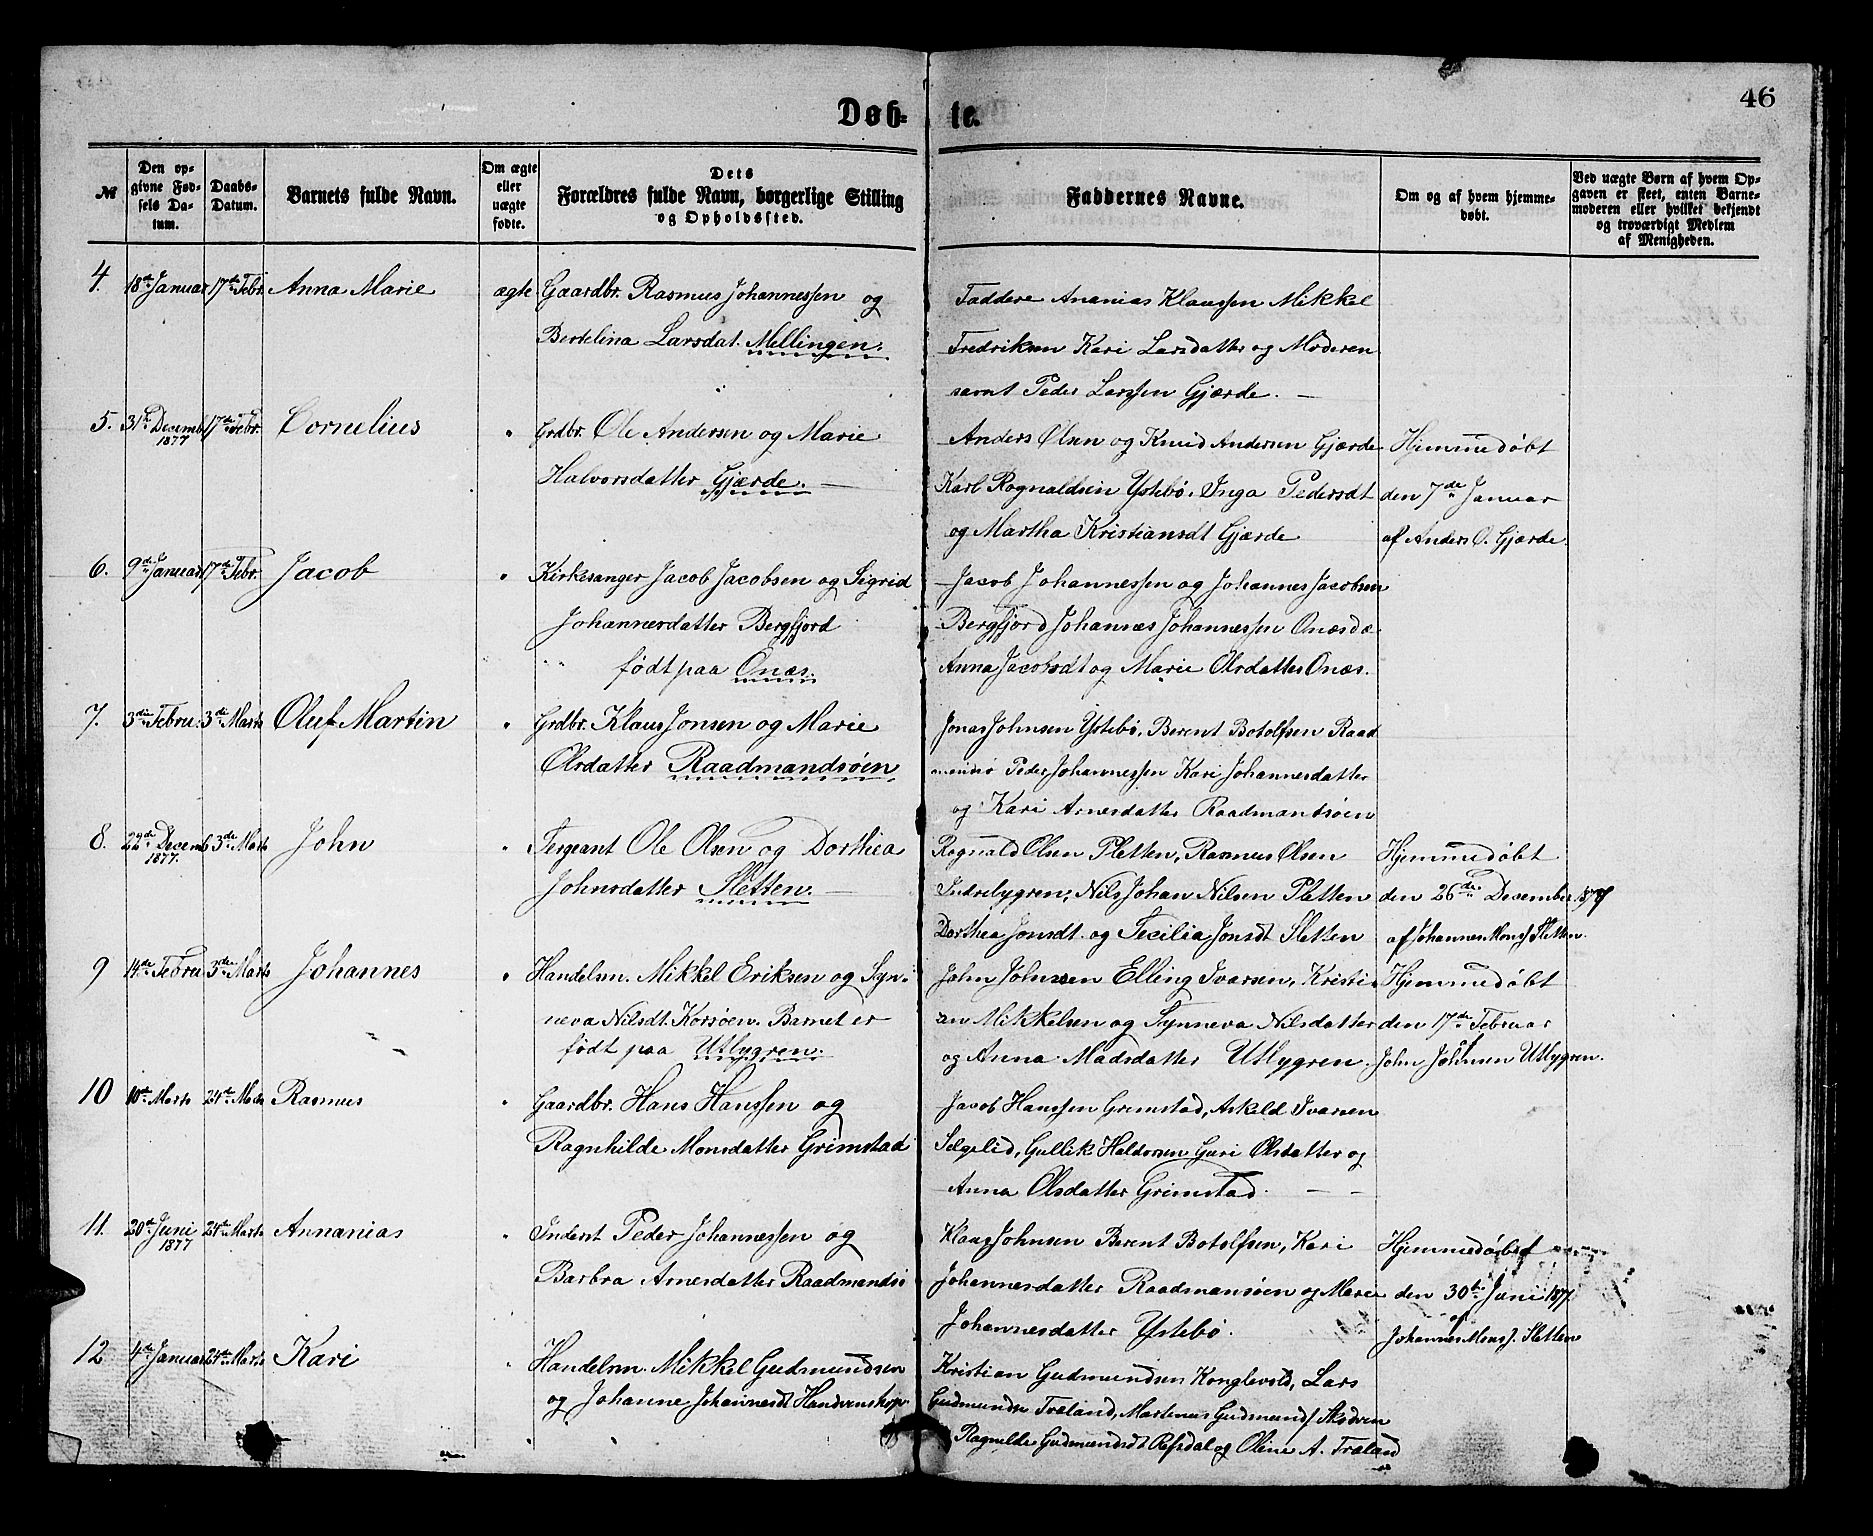 46
Døb- te.
№
Den op-
givne Fød-
sels Da-
tum.
Daabs-
Datum.
Barnets fulde Navn.
Om ægte
eller
uægte
fødte.
Dets
Forældres fulde Navn, borgerlige Stilling
og Opholdssted.
Faddernes Navne.
Om og af hvem hjemme-
døbt.
Ved uægte Børn af hvem Op-
gaven er skeet, enten Barne-
moderen eller hvilket bekjendt
og troværdigt Medlem
af Menigheden.
4. 18de Januar 17de Febr. Anna Marie ægte Gaardbr. Rasmus Johannessen og
Bertelina Larsdat. Mellingen.
Faddere Ananias Klaussen Mikkel
Fredriksen Kari Larsdatter og Moderen
samt Peder Larssen Gjærde. —
5. 31te Decemb 17de Febr. Cornelius " Grdbr. Ole Andersen og Marie
1877
Halvorsdatter Gjærde. —
Anders Olsen og Knud Andersen Gjærde
Karl Rognaldsen Ystebø, Inga Pedersdt
og Martha Kristiansdt Gjærde
Hjemmedøbt
den 7de Januar
af Anders O. Gjærde.
6. 9de Januar 17de Febr. Jacob " Kirkesanger Jacob Jacobsen og Sigrid
Johannesdatter Bergfjord
" født paa Onæs.
Jacob Johannessen og Johannes Jacobsen
Bergfjord Johannes Johannessen Onæs
Anna Jacobsdt og Marie Olsdatter Onæs.
7. 3die Febru. 3die Marts Oluf Martin " Grdbr. Klaus Jonsen og Marie
Olsdatter Raadmandsøen
Jonas Johnsen Ystebø, Berent Botolfsen Raad
mandsø Peder Johannessen Kari Johannesdatter
og Kari Arnesdatter Raadmandsøen
8. 22de Decemb 3die Marts John " Sergeant Ole Olsen og Dorthea
1877.
Johnsdatter Sletten. —
Rognald Olsen Sletten, Rasmus Olsen
Indrebygren, Nils Johan Nilsen Sletten
Dorthea Jonsdt. og Cecilia Jonsdt Sletten
Hjemmedøbt
den 26de December 1877
af Johannes Mons. Sletten.
9 14de Febru 3die Marts Johannes " Handelsm. Mikkel Eriksen og Syn-
neva Nilsdt. Korsøen. Barnet er
født paa Utbygren.
John Johnsen Elling Ivarsen, Kristi-
an Mikkelsen og Synneva Nilsdatter
og Anna Madsdatter Utbygren.
Hjemmedøbt
den 17de Februar
af
John Johnsen Utbygren.
10 10de Marts 24de Marts Rasmus " Gaardbr. Hans Hanssen og
Ragnhilde Monsdatter Grimstad
Jacob Hanssen Grimstad, Askeld Ivarsen
Selgelid, Gullik Haldorsen Guri Olsdatter og
Anna Olsdatter Grimstad. — —
11. 20de Juni 24de Marts Annanias " Inderst Peder Johannessen og
1877
Barbra Arnesdatter Raadmandsø
Klaus Johnsen Berent Botolfsen, Kari
Johannesdatter Raadmansøen og Marie
Johannesdatter Ystebø.
Hjemmedøbt
den 30te Juni 1877.
af
Johannes Mons. Sletten
12 4de Januar 24de Marts Kari " Handelsm. Mikkel Gudmundsen
og Johanne Johannesdt
Kristian Gudmundsen Konglevold, Lars
Gudmunds. Træland, Martinus Gudmunds.
Ragnilde Gudmundsdt Refsdal og Oline A. Træland